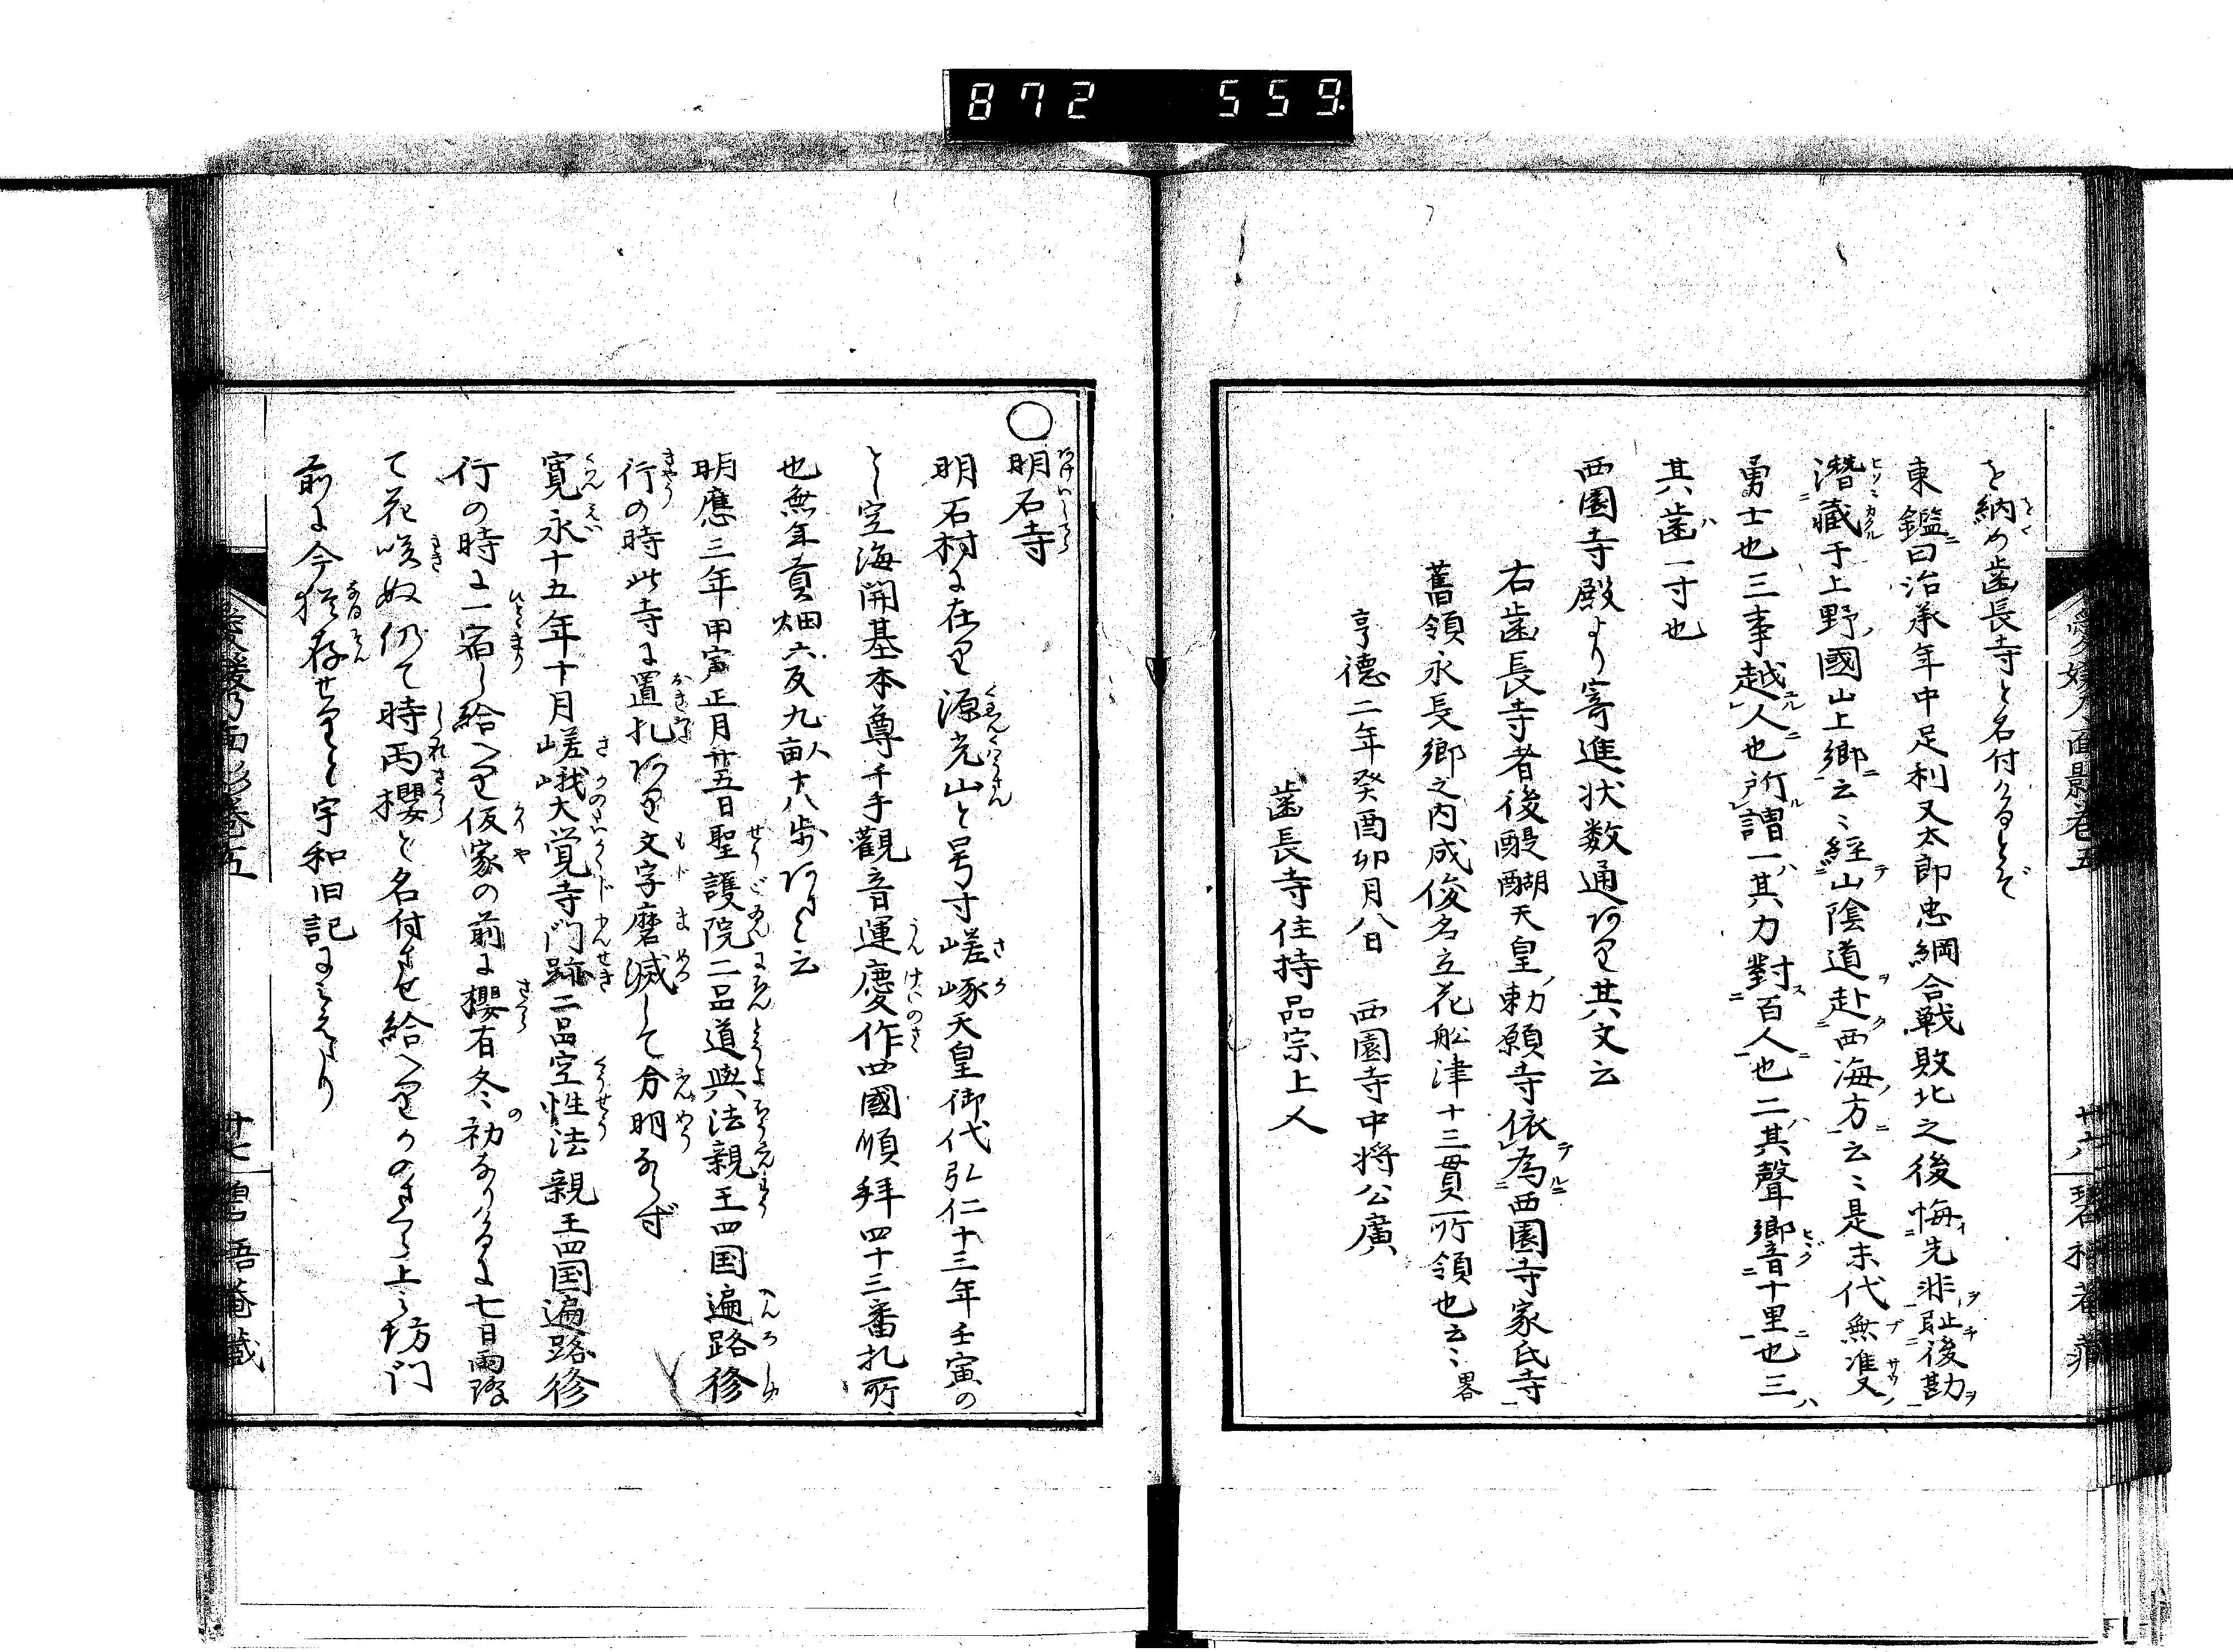 872 559
愛媛乃面影巻五 廿六 碧梧菴蔵
を納め歯長寺と名付けるとぞ
東鑑曰治承年中足利又太郎忠綱合戰敗北之後悔先非耻後勘
潜藏于上野國山上郷云〻経山陰道赴西海方云〻是末代無雙
勇士也三事越人也所謂一其力對百人也二其聲響十里也三
其歯一寸也
西園寺殿より寄進状数通ありて其文云
右歯長寺者後醍醐天皇勅願寺依為西園寺家氏寺
舊領永長郷之内成俊名立花舩津十三貫所領也云〻畧
享德二年癸酉卯月八日 西園寺中将公廣
歯長寺住持品宗上人
○明石寺
明石村に在て源光山と号す嵯峨天皇御代弘仁十三年壬寅の
とし空海開基本尊千手觀音運慶作四國順拜四十三番札所
也無年貢畑六反九畝十八歩あり云
明應三年甲寅正月廿五日聖護院二品道興法親王四国遍路修
行の時此寺に置札あり文字磨滅して分明ならず
寛永十五年十月嵯峨大覚寺門跡二品空性法親王四国遍路修
行の時に一宿し給へり仮家の前に櫻有冬の初なりけるに七日雨降
て花咲ぬ仍て時雨櫻と名付させ給へりそのさくら上之坊門
前に今猶存せりと宇和旧記に見えたり
愛媛乃面影巻五 廿七 碧梧菴蔵